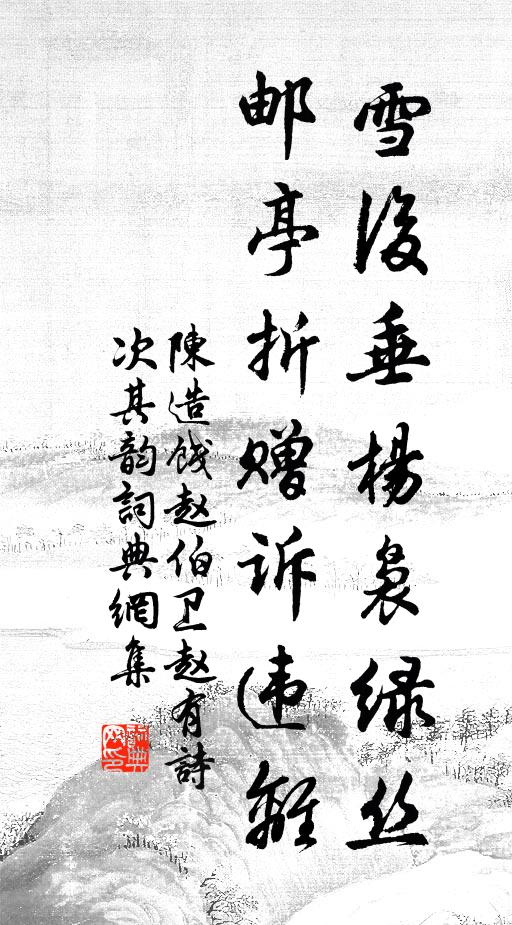 雪後垂楊裊緑丝
邮亭折赠诉违離
陳造餞赵伯卫赵有詩
次其韵詞典網集